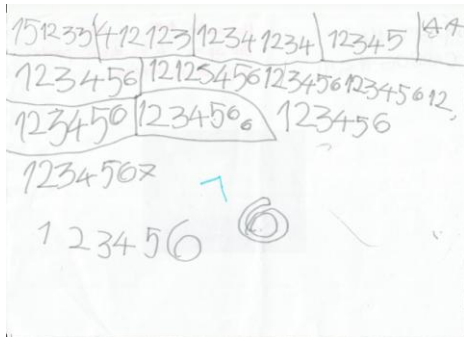 151233 412123 12341234 12345 44
123456 12123456 123456 123456 12,
123456 1234566 123456
1234567
7 6
123456